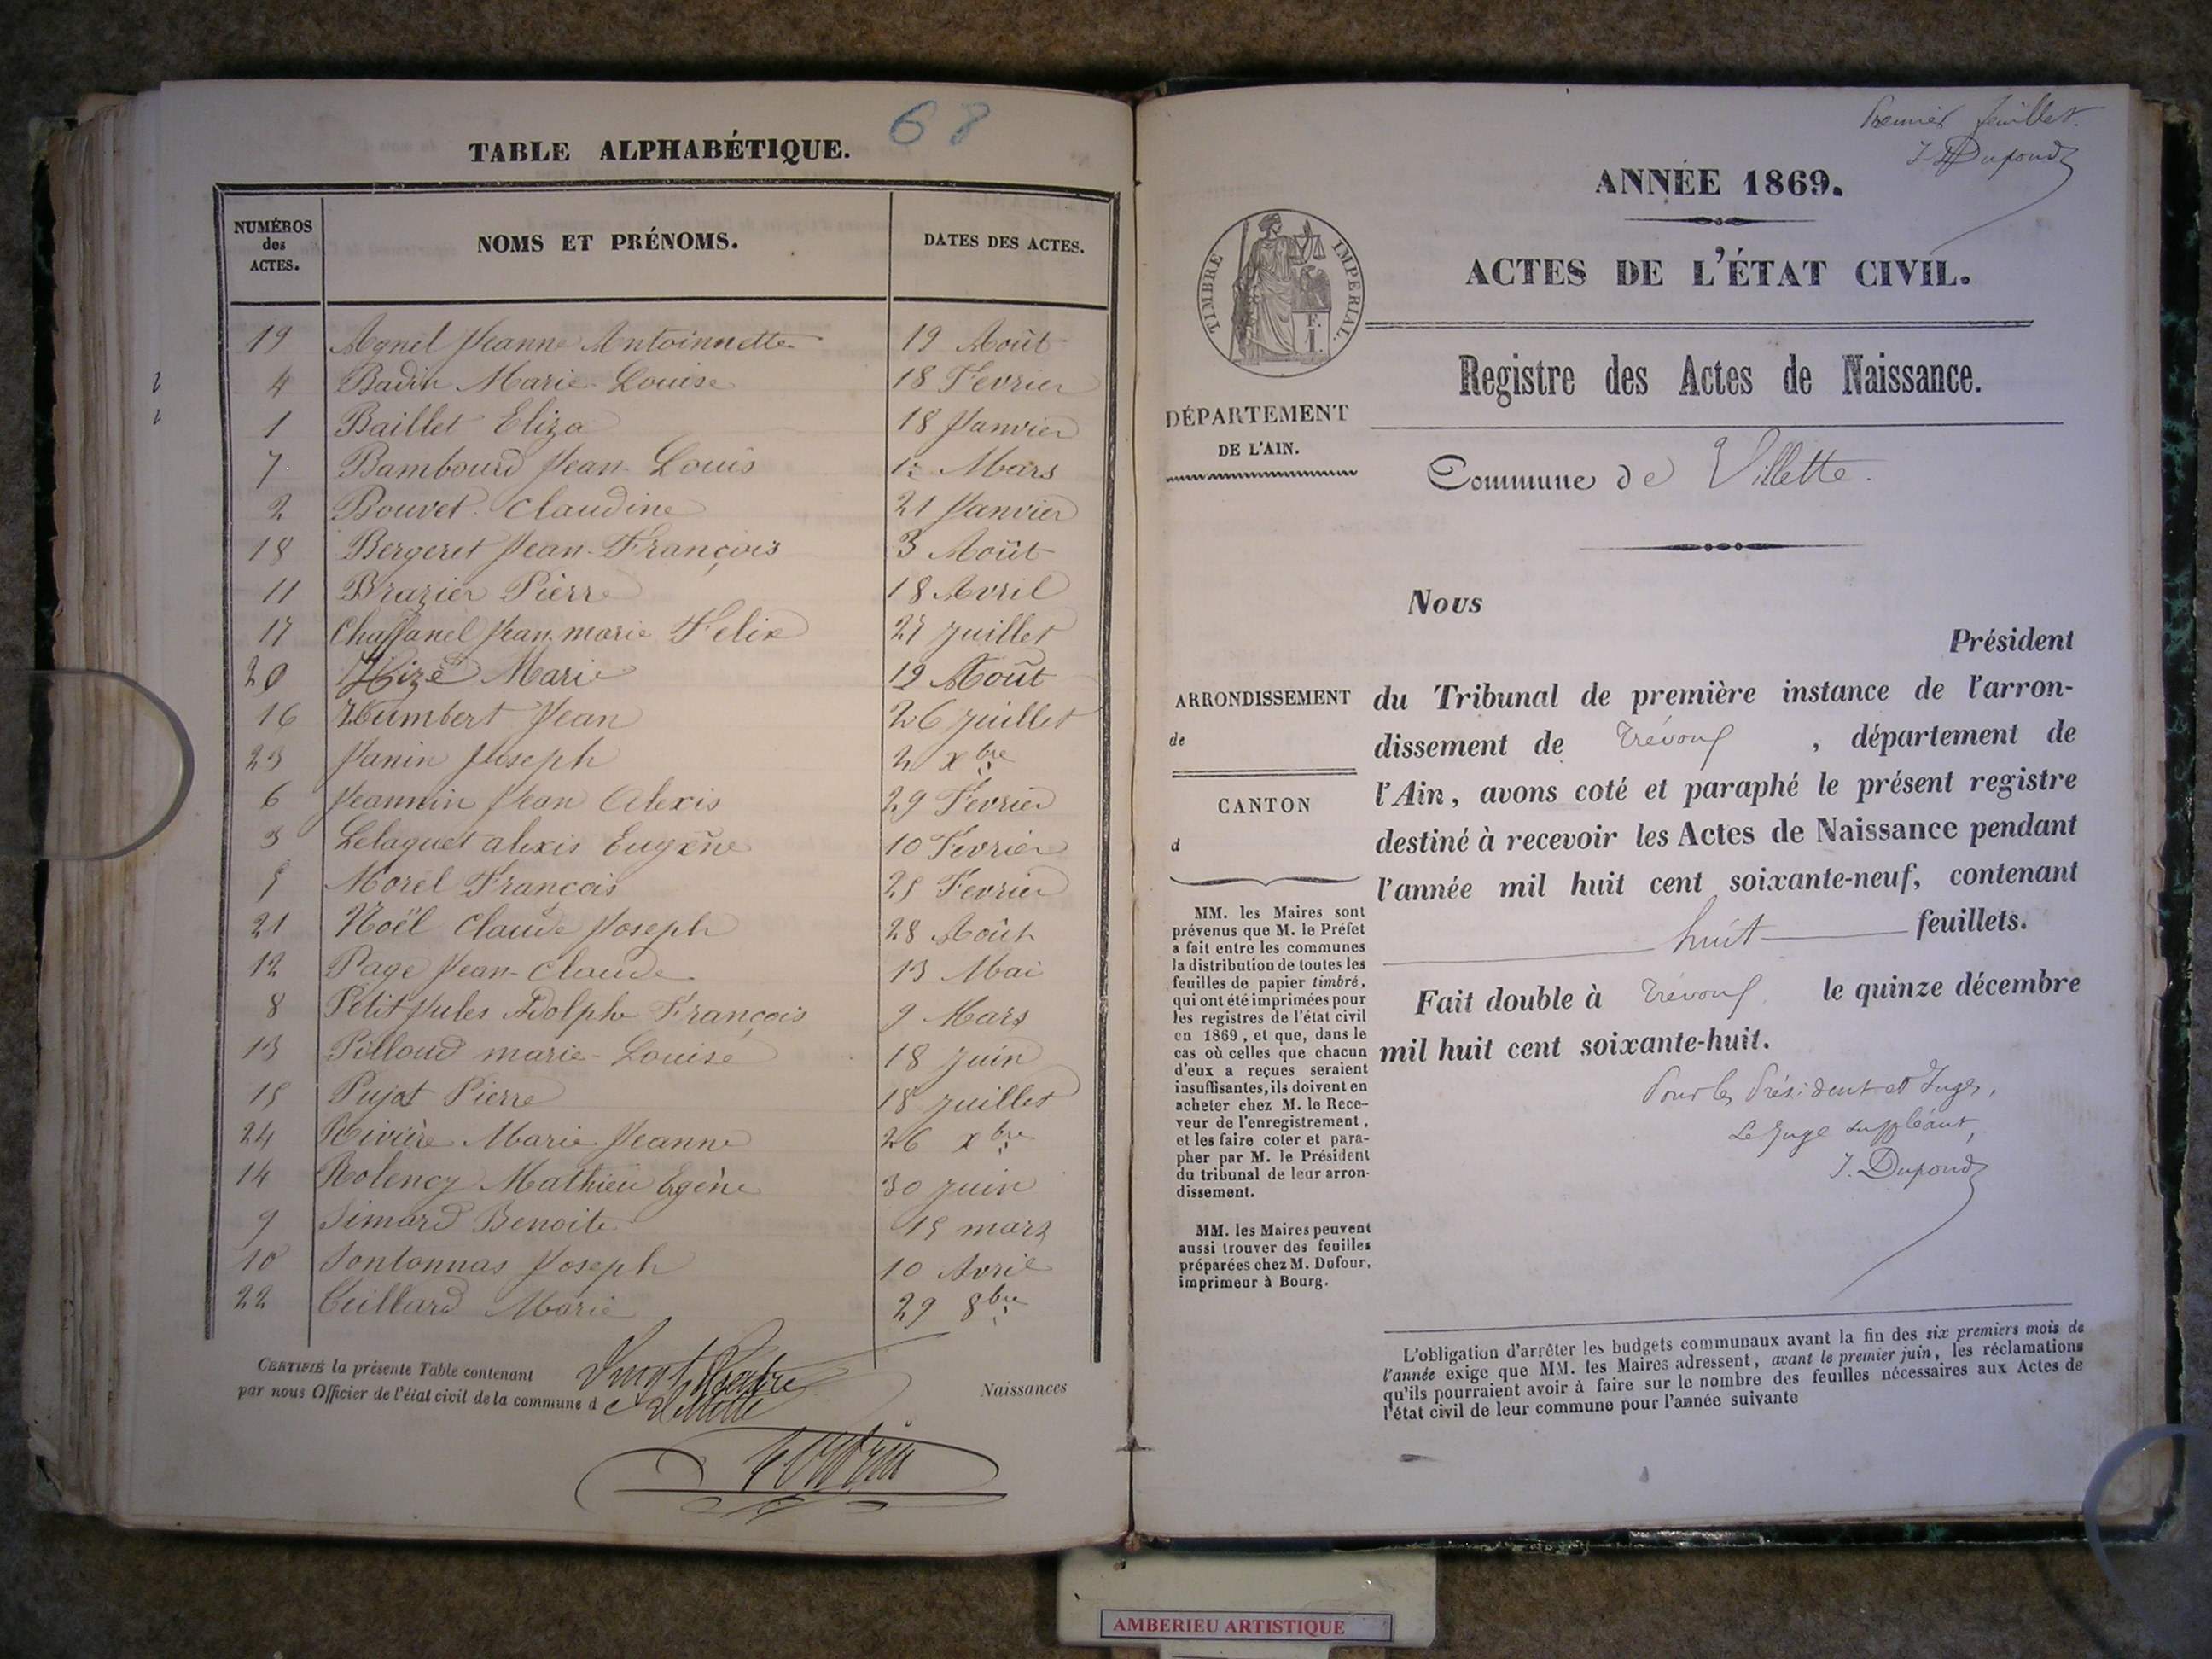 68
TABLE ALPHABÉTIQUE.
NUMÉROS des ACTES.
NOMS ET PRÉNOMS.
DATES DES ACTES.
19 Agnel Jeanne Antoinette 19 Août
4 Badin Marie-Louise 18 Fevrier
1 Baillet Eliza 18 Janvier
7 Bambourd Jean-Louis 1er Mars
2 Bouvet Claudine 21 Janvier
18 Bergeret Jean-François 3 Août
11 Brazier Pierre 18 Avril
17 Chaffanel Jean marie Felix 27 juillet
20 Hizé Marie 19 Août
16 Humbert Jean 26 juillet
23 Janin Joseph 2 xbre
6 Jeannin Jean Alexis 29 Fevrier
3 Lelaquet alexis Eugène 10 Fevrier
5 Morel François 25 Fevrier
21 Noël Claude Joseph 28 Août
12 Page Jean-Claude 13 Mai
8 Petit Jules Adolphe François 9 Mars
13 Pilloud marie-Louise 18 juin
15 Pujat Pierre 18 juillet
24 Rivière Marie Jeanne 26 xbre
14 Rolency Mathieu Egène 30 juin
9 Simard Benoite 15 mars
10 Sontonnas Joseph 10 Avril
22 Cuillard Marie 29 8bre
CERTIFIÉ la présente Table contenant Vingt Quatre Naissances
par nous Officier de l'état civil de la commune d e Villette
Premier feuillet.
J. Dupond
ANNÉE 1869.
ACTES DE L'ÉTAT CIVIL.
TIMBRE IMPERIAL.
F. 1.
Registre des Actes de Naissance.
DÉPARTEMENT
DE L'AIN.
Commune de Villette.
Nous
Président
ARRONDISSEMENT
de
CANTON
d
du Tribunal de première instance de l'arron-
dissement de Trévoux, département de
l'Ain, avons coté et paraphé le présent registre
destiné à recevoir les Actes de Naissance pendant
l'année mil huit cent soixante-neuf, contenant
huit feuillets.
Fait double à Trévoux le quinze décembre
mil huit cent soixante-huit.
Pour les Président et Juges,
Le Juge suppléant,
J. Dupond
MM. les Maires sont
prévenus que M. le Préfet
a fait entre les communes
la distribution de toutes les
feuilles de papier timbré,
qui ont été imprimées pour
les registres de l'état civil
en 1869, et que, dans le
cas où celles que chacun
d'eux a reçues seraient
insuffisantes, ils doivent en
acheter chez M. le Rece-
veur de l'enregistrement,
et les faire coter et para-
pher par M. le Président
du tribunal de leur arron-
dissement.
MM. les Maires peuvent
aussi trouver des feuilles
préparées chez M. Dufour,
imprimeur à Bourg.
L'obligation d'arrêter les budgets communaux avant la fin des six premiers mois de
l'année exige que MM. les Maires adressent, avant le premier juin, les réclamations
qu'ils pourraient avoir à faire sur le nombre des feuilles nécessaires aux Actes de
l'état civil de leur commune pour l'année suivante
AMBERIEU ARTISTIQUE